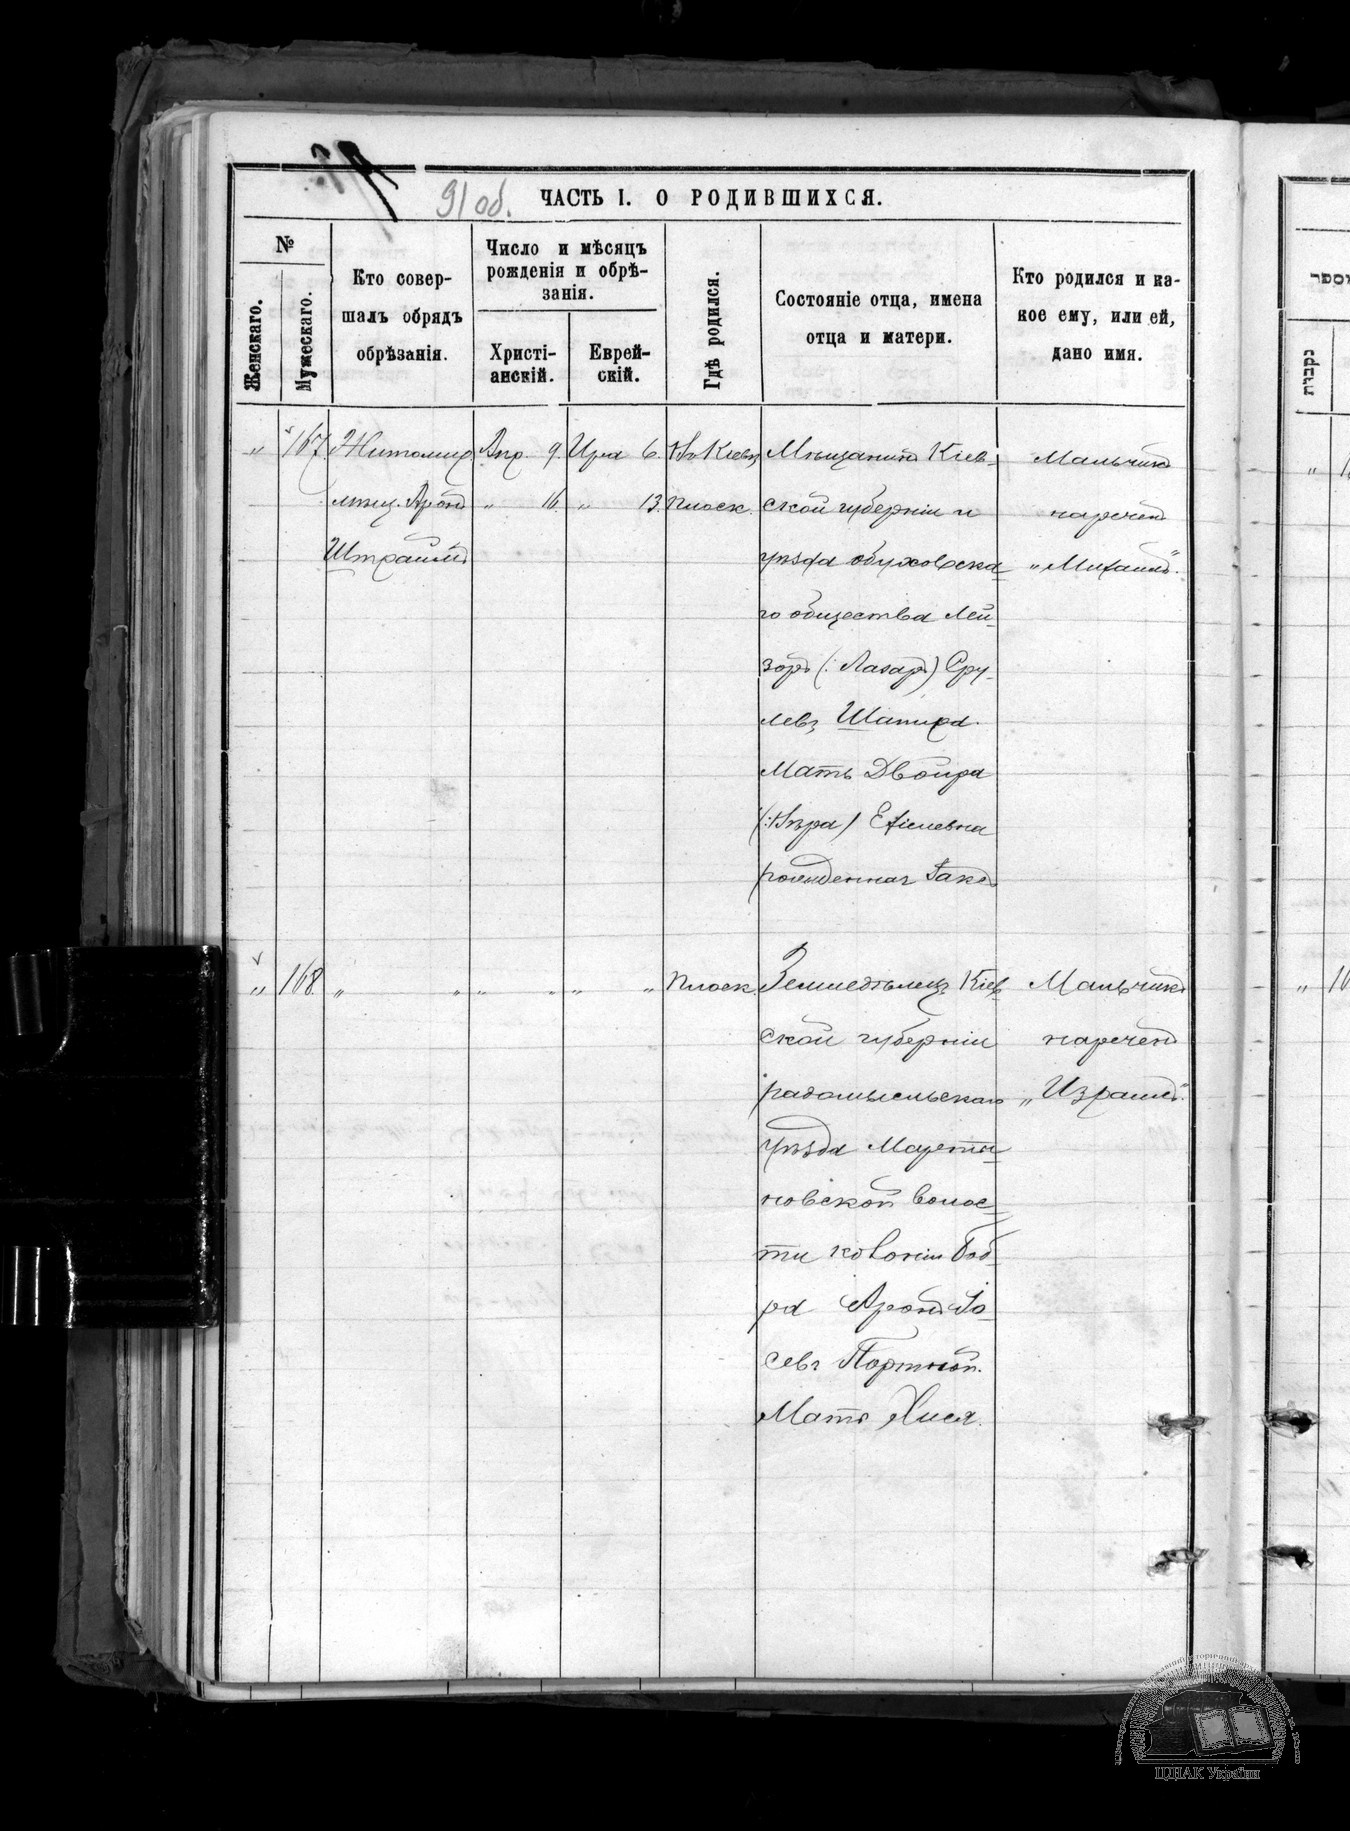 91 об.
ЧАСТЬ I. О РОДИВШИХСЯ.
№
Женскаго.
Мужескаго.
Кто совер-
шалъ обрядъ
обрѣзанія.
Число и мѣсяцъ
рожденія и обрѣ-
занія.
Христі-
анскій.
Еврей-
скій.
Гдѣ родился.
Состояніе отца, имена
отца и матери.
Кто родился и ка-
кое ему, или ей,
дано имя.
" 167. Житомир
мѣщ. Аронъ
Апр. 9. Ира 6.
" 16. " 13.
Въ Кіевѣ
Плоск.
Мѣщанинъ Кіев-
ской губерніи и
уѣзда обуховска-
го общества Лей-
зоръ (: Лазарь) Сру-
левъ Шапира.
Мать Двойра
(: Вѣра)
рожденная
Мальчикъ
нареченъ
„Михаилъ“.
" 168. " " " " " " Плоск.
Земледѣлецъ Кіев-
ской губерніи
радомысльскаго
уѣзда
новской волос-
ти колоніи Боб-
ра Аронъ Іо-
севъ Портной.
Мать Хися.
Мальчикъ
нареченъ
„Израиль“.
מספר
נקבות
" 16
" 16
ЦДІАК України